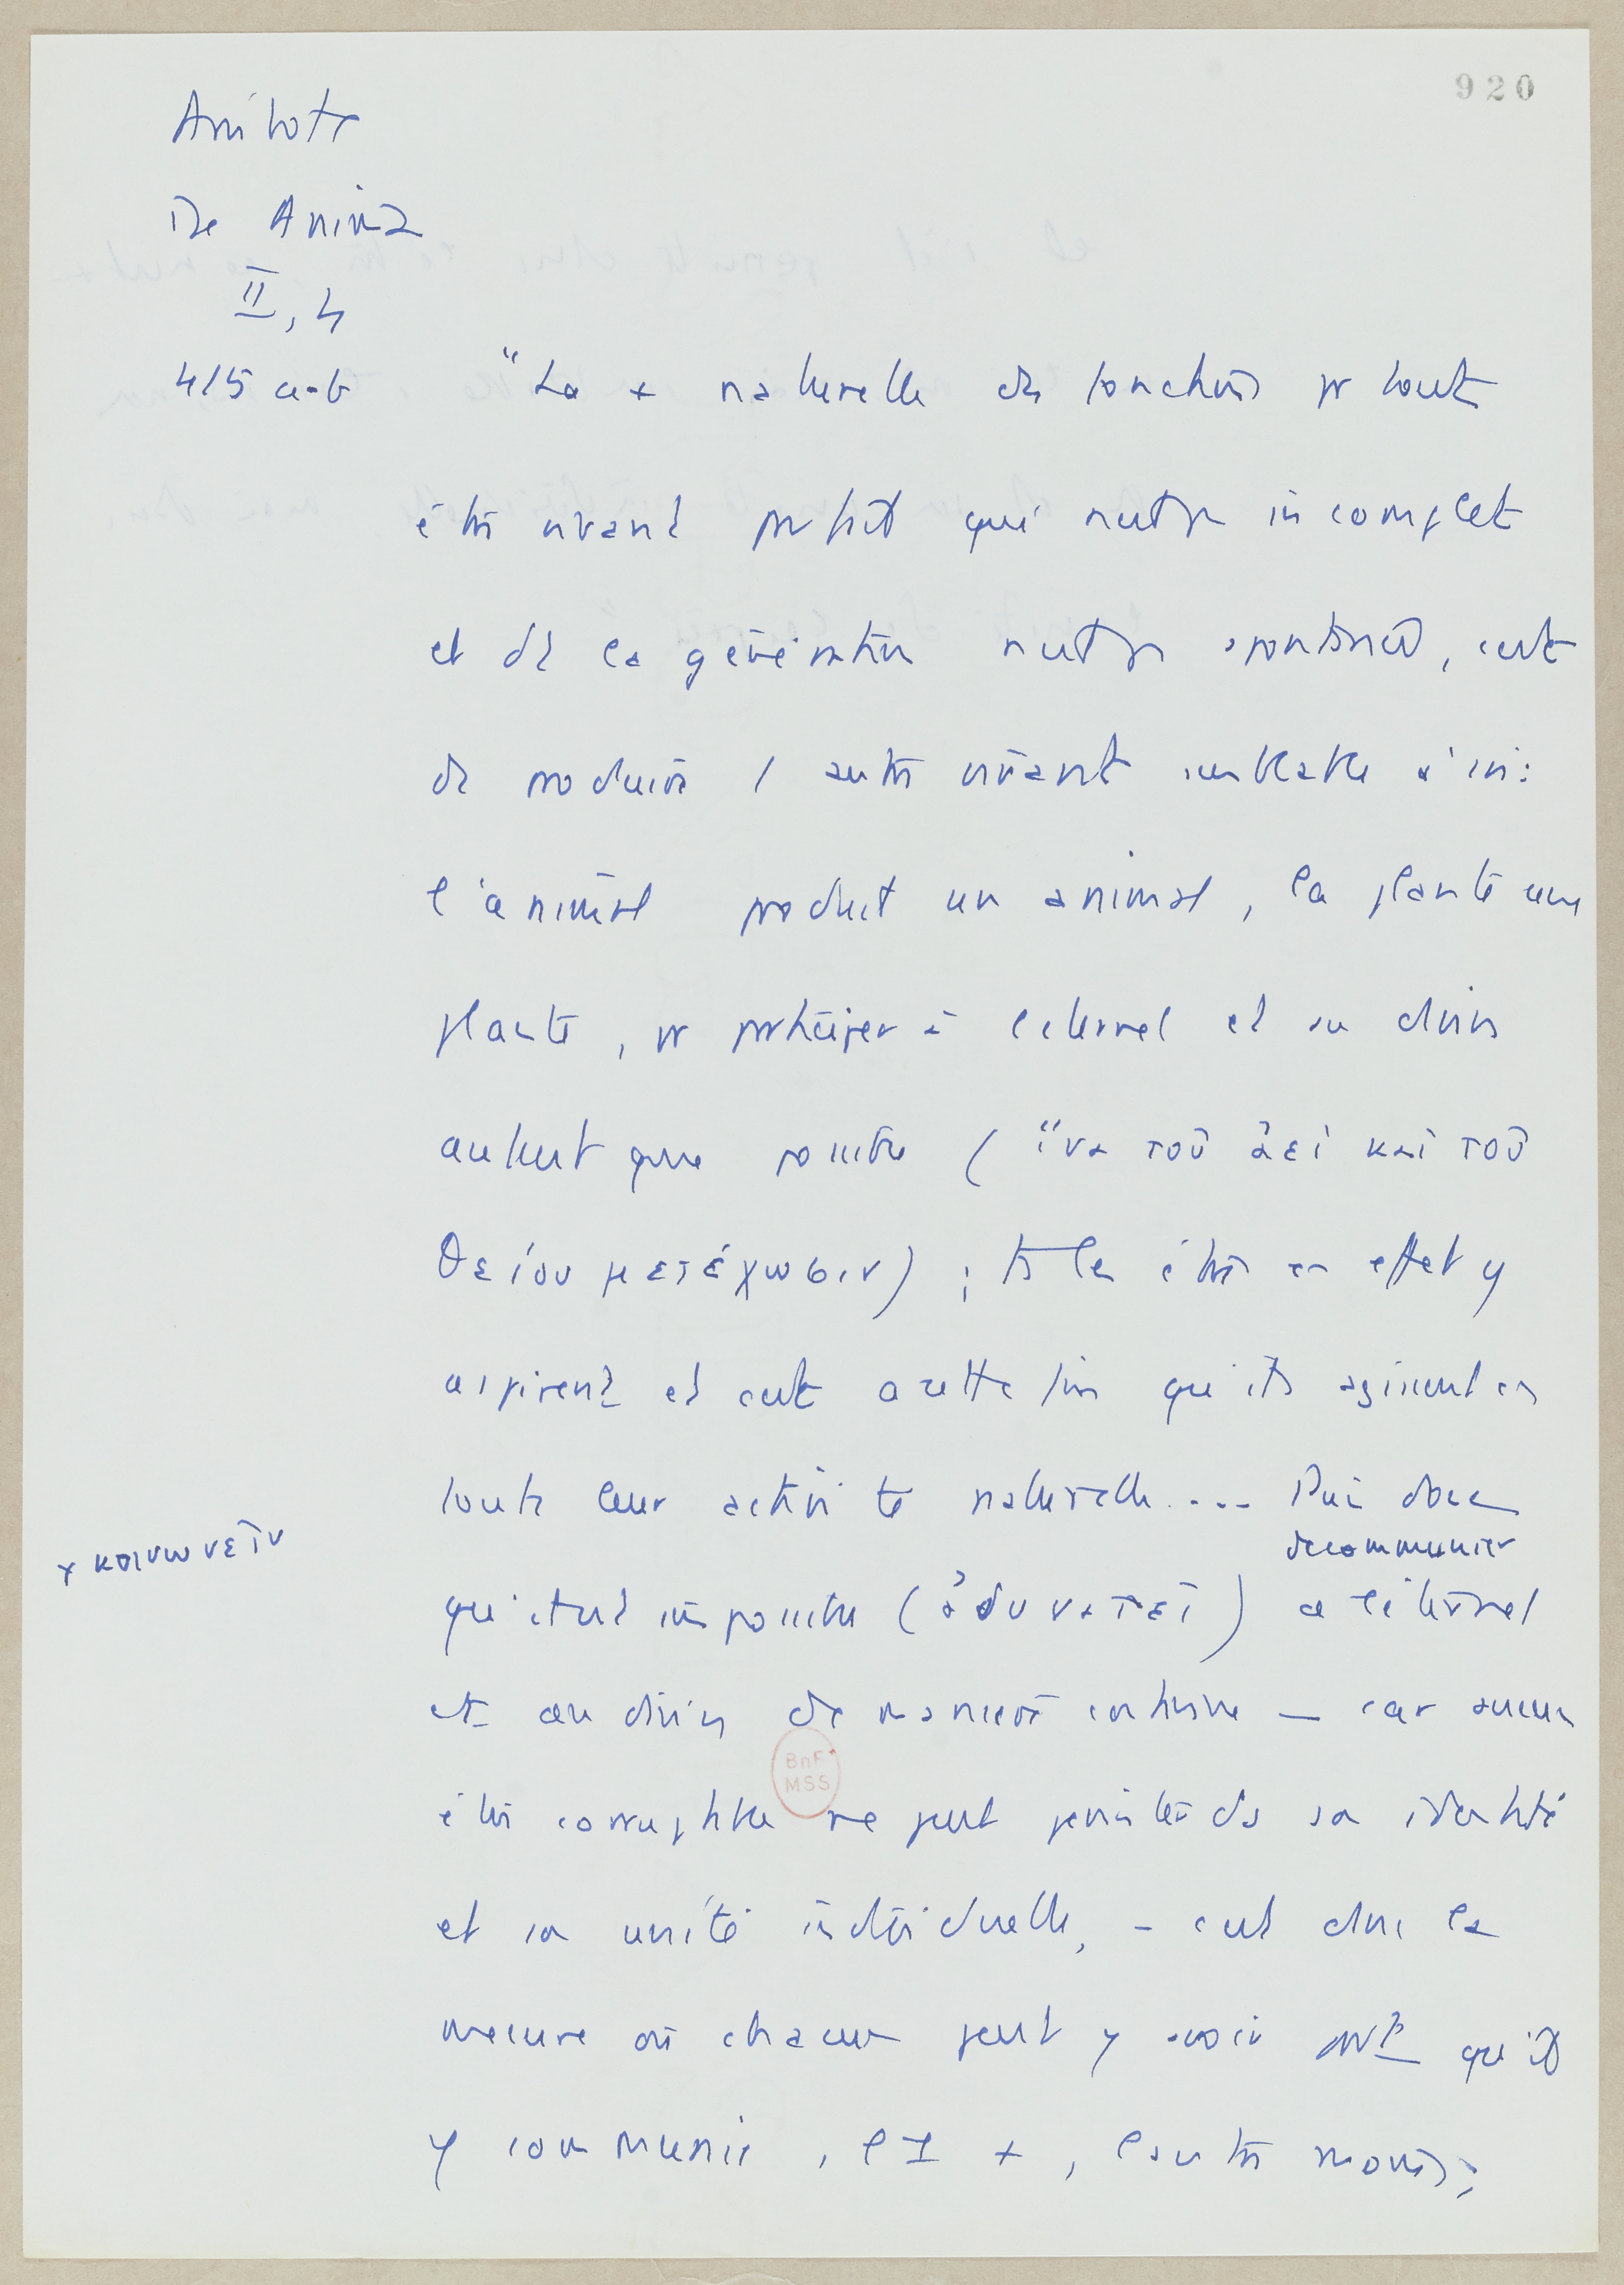 920
Aristote
De Anima
II, 4
415 a-b
"La + naturelle des fonctions pr tout
être vivant parfait qui n'est pas incomplet
et dt la génération n'est pas spontanée, c'est
de produire 1 autre vivant semblable à lui :
l'animal produit un animal, la plante une
plante, pr participer à l'éternel et au divin
autant que possible (ἵνα τοῦ ἀεὶ καὶ τοῦ
θείου μετέχωσιν) ; ts les êtres en effet y
aspirent et c'est à cette fin qu'ils agissent en
toute leur activité naturelle.... Puis donc
+ κοινωνεῖν
de communier
qu'il est impossible (ἀδυνατεῖ) à l'éternel
et au divin de manière continue — car aucun
être corruptible ne peut persister ds sa identité
et sa unité individuelle, - c'est dans la
mesure où chacun peut y avoir part qu'il
y communie, l'1 +, l'autre moins ;
BnF
MSS